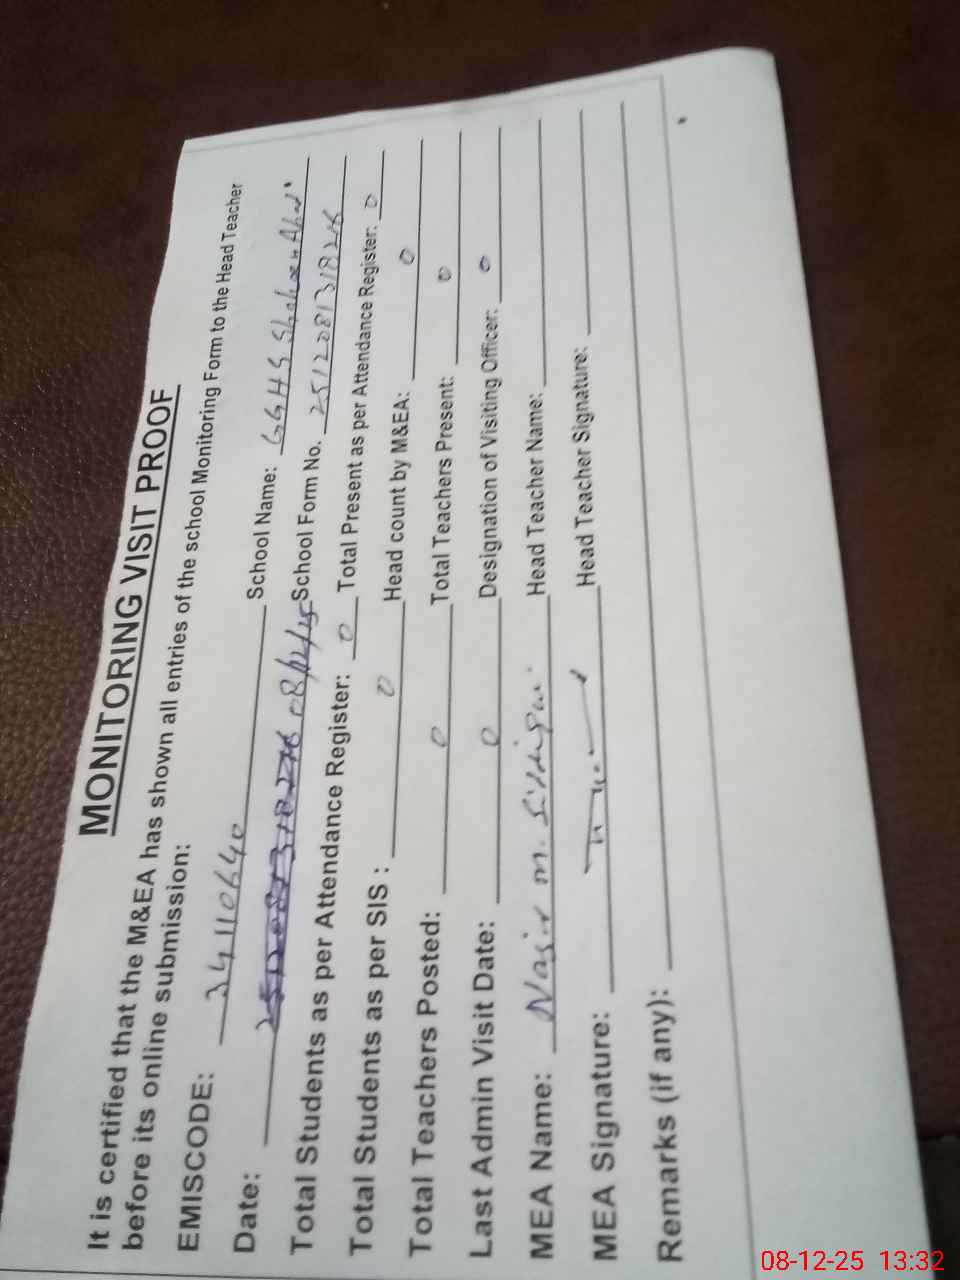 MONITORING VISIT PROOF
It is certified that the M&EA has shown all entries of the school Monitoring Form to the Head Teacher
before its online submission:
EMISCODE: 34110640 School Name: GGHS
Date: 08/12/25 School Form No. 2512081318216
Total Students as per Attendance Register: 0 Total Present as per Attendance Register: 0
Total Students as per SIS : 0 Head count by M&EA: 0
Total Teachers Posted: 0 Total Teachers Present: 0
Last Admin Visit Date: 0 Designation of Visiting Officer: 0
MEA Name: Nasir m. Head Teacher Name:
MEA Signature: Head Teacher Signature:
Remarks (if any):
08-12-25 13:32